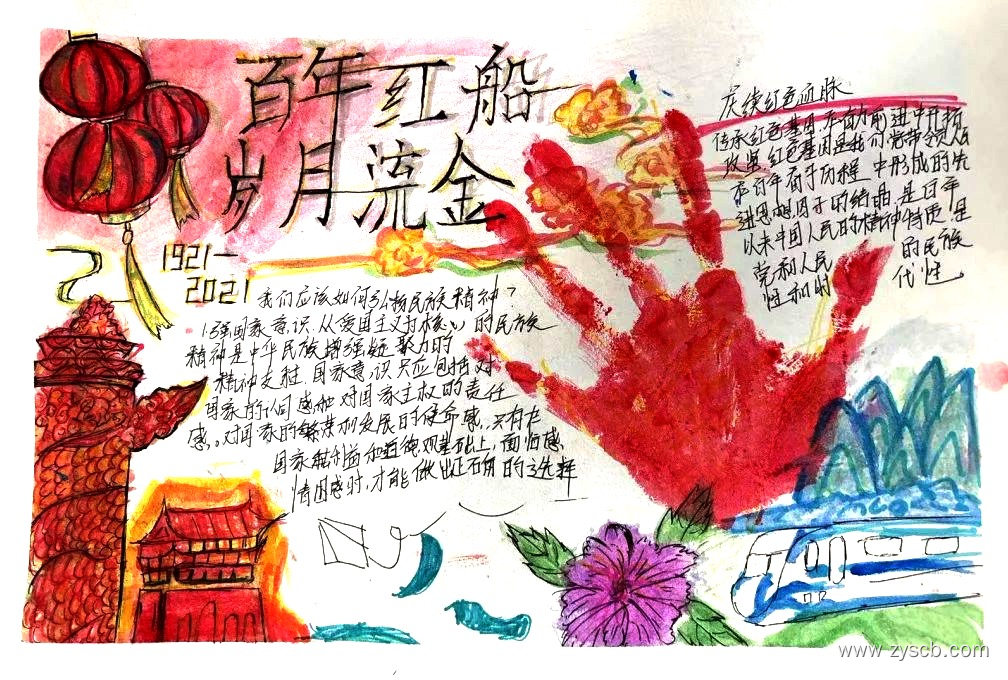 百年红船
岁月流金
1921—
2021
赓续红色血脉
传承红色基因,在前进中开拓
攻坚 红色基因是我们党带领人民
在百年奋斗历程中形成的先
进思想因子的结晶,是百年
以来中国人民的精神特质,是
党和人民 的民族
性和时 代性
我们应该如何弘扬民族精神?
1.强国家意识.从爱国主义为核心的民族
精神是中华民族增强凝聚力的
精神支柱.国家意识只应包括对
国家的认同感和对国家主权的责任
感。对国家的繁荣和发展的使命感,只有在
国家利益和道德观基础上,面临感
情困惑时,才能做出正确的选择
www.zyscb.com